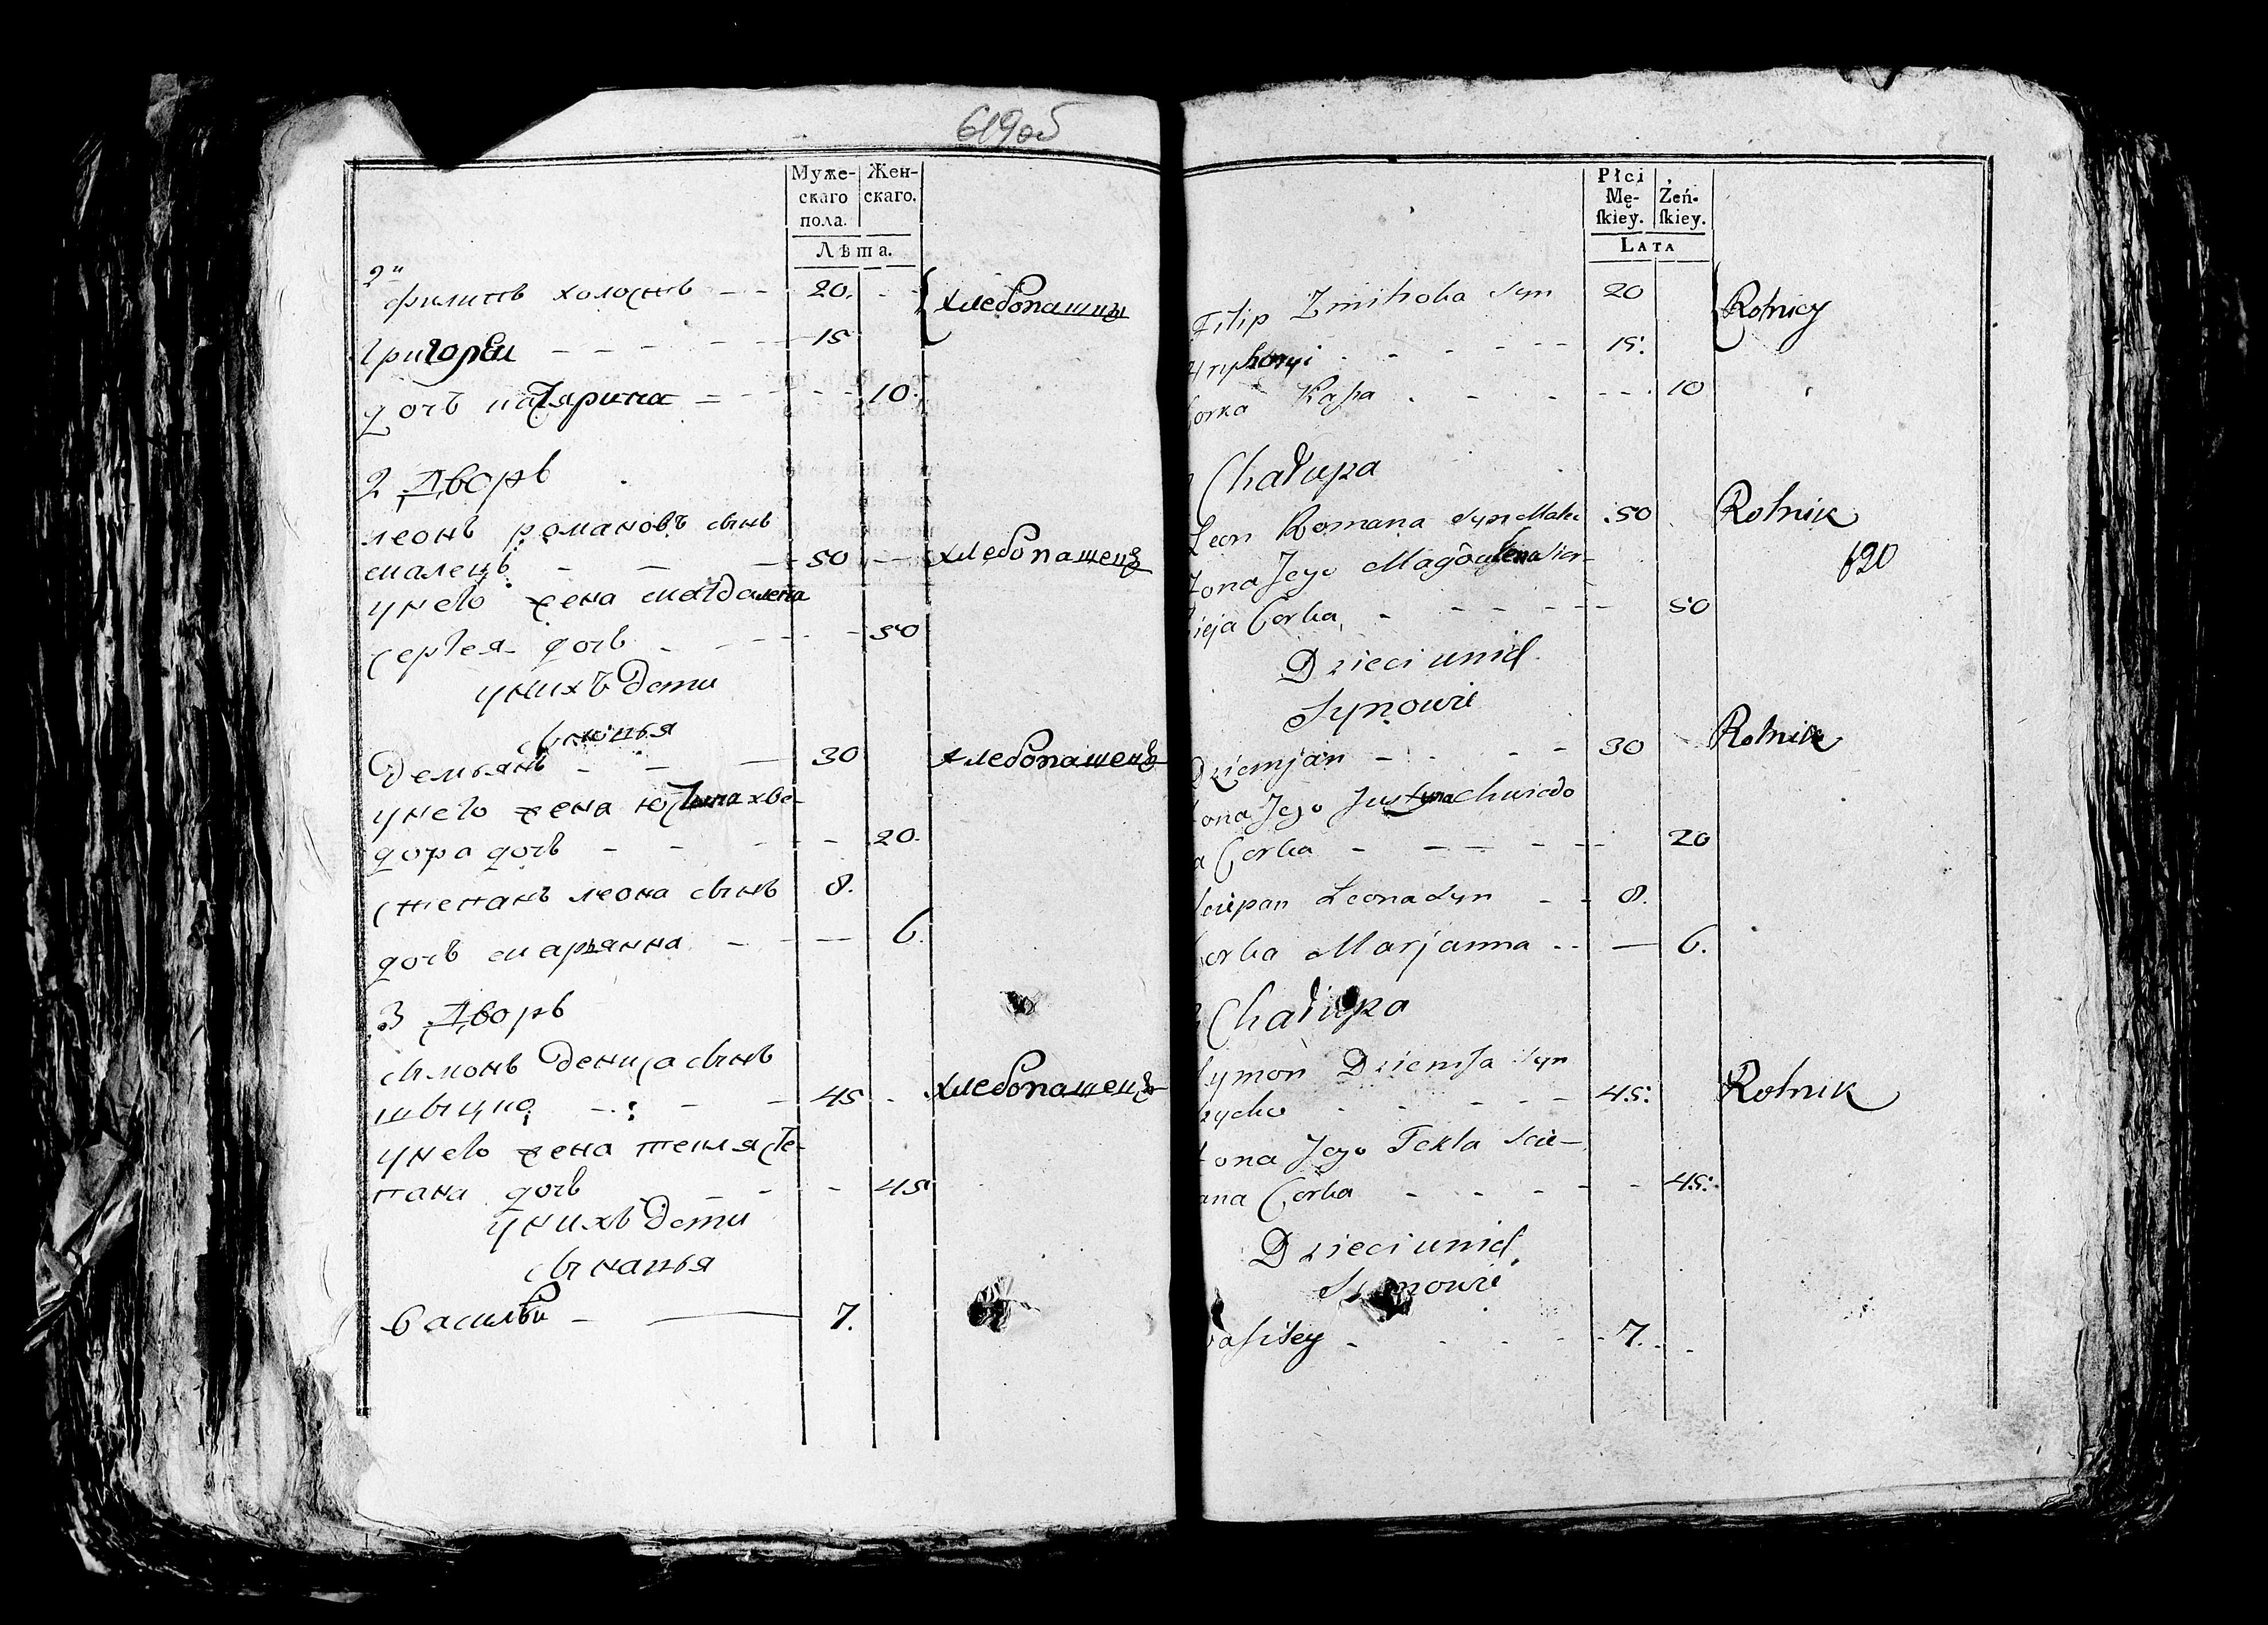 619об
Муже- Жен-
скаго скаго.
пола.
Лѣта.
2й
филипъ холостъ 20. хлебопашцы
григорѣй 15
дочь катярина 10.
2 Дворъ
леонъ романовъ сынъ
малецъ 50 хлебопашецъ
унего жена магдалена
сергея дочь 50
унихъ дети
сынове
демьянъ 30 хлебопашецъ
унего жена юстына хве-
дора дочь 20.
степанъ леона сынъ 8.
дочь марьянна 6.
3 Дворъ
сымонъ дениса сынъ
45 хлебопашецъ
унего жена текля сте-
пана дочь 45
унихъ дети
сыновья
василѣй 7.
Płci
Mę- Żeń-
ſkiey. ſkiey.
LATA
Filip syn 20 Rolnicy
15.
Corka Kaſia 10
Chałupa
Leon Romana syn 50 Rolnik
620
Żona Jego Magdalena Sier-
Corka 50
Dzieci unich
Synowie
Dziemjan 30 Rolnik
Żona Jego Justyna Chwiedo
ra Corka 20
Sciepan Leona Syn 8.
Corka Marjanna 6.
3 Chałupa
Symon Dzienisa Syn
45. Rolnik
Żona Jego Tekla Scie-
pana Corka 45.
Dzieci unich
Synowie
Waſiley 7.